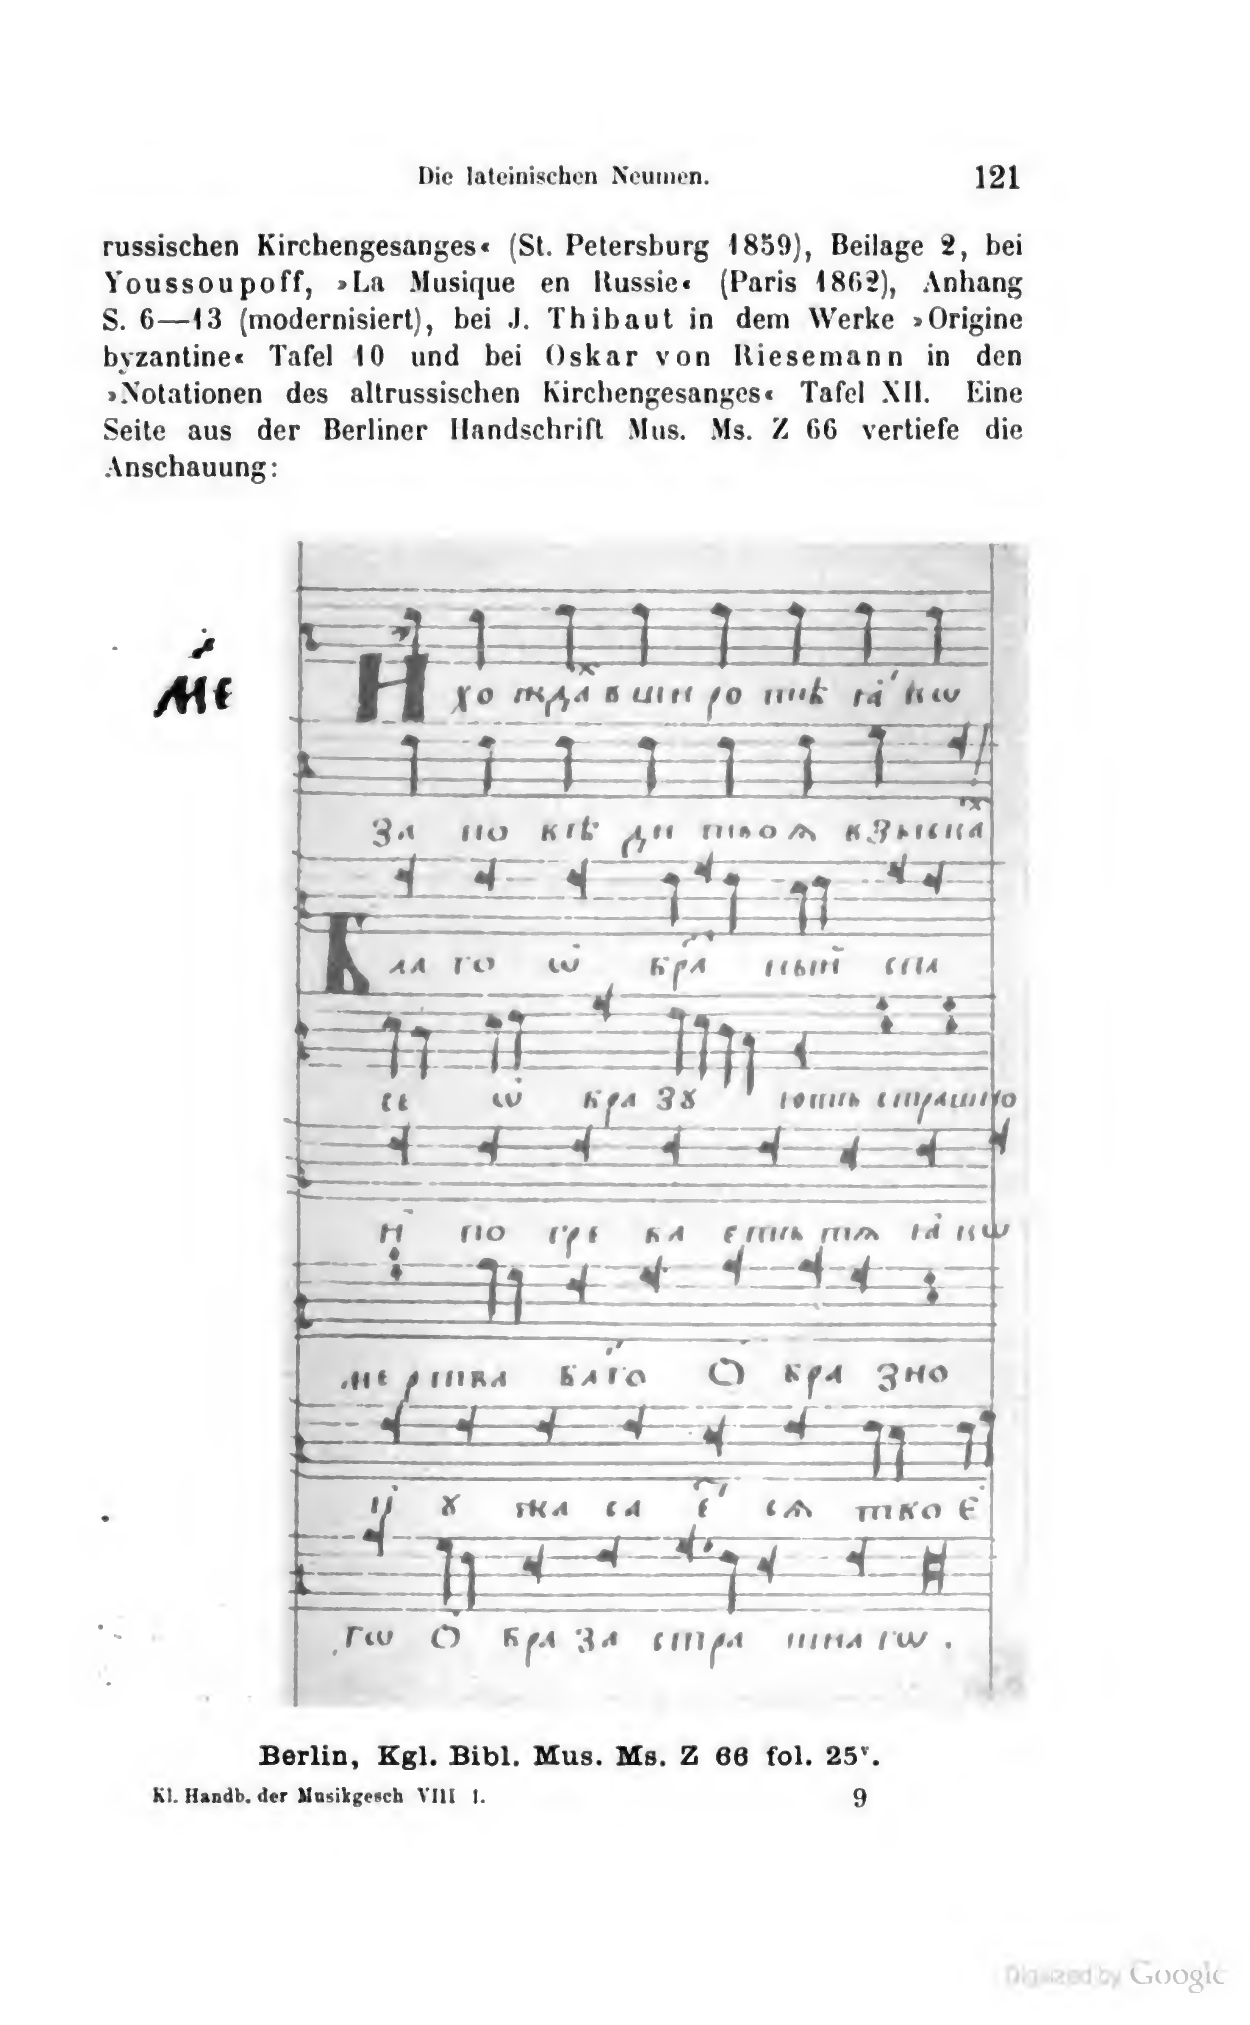 Die lateinischen Neumen. 121
russischen Kirchengesanges« (St. Petersburg 1859), Beilage 2, bei
Youssoupoff, »La Musique en Russie« (Paris 1862), Anhang
S. 6—13 (modernisiert), bei J. Thibaut in dem Werke »Origine
byzantine« Tafel 10 und bei Oskar von Riesemann in den
»Notationen des altrussischen Kirchengesanges« Tafel XII. Eine
Seite aus der Berliner Handschrift Mus. Ms. Z 66 vertiefe die
Anschauung:
за по вѣ ди твоѧ взыска
се ѡ кра зꙋ
по гре ба етъ тѧ ꙗкѡ
ме ртва благо ѻ бра зно
гѡ ѻ бра за стра шнагѡ.
Berlin, Kgl. Bibl. Mus. Ms. Z 66 fol. 25v.
Kl. Handb. der Musikgesch VIII 1. 9
Digitized by Google